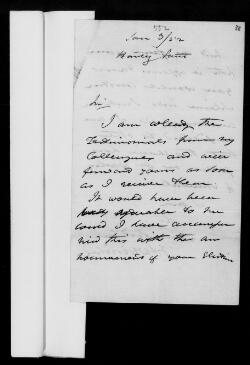 552
Jan 3/52
Harley Street
Sir
I am already the
Testimonials from my
Colleagues and will
forward yours as soon
as I receive them
It would have been
agreeable to me
could I have accompa
nied this with the an
nouncement of your Election